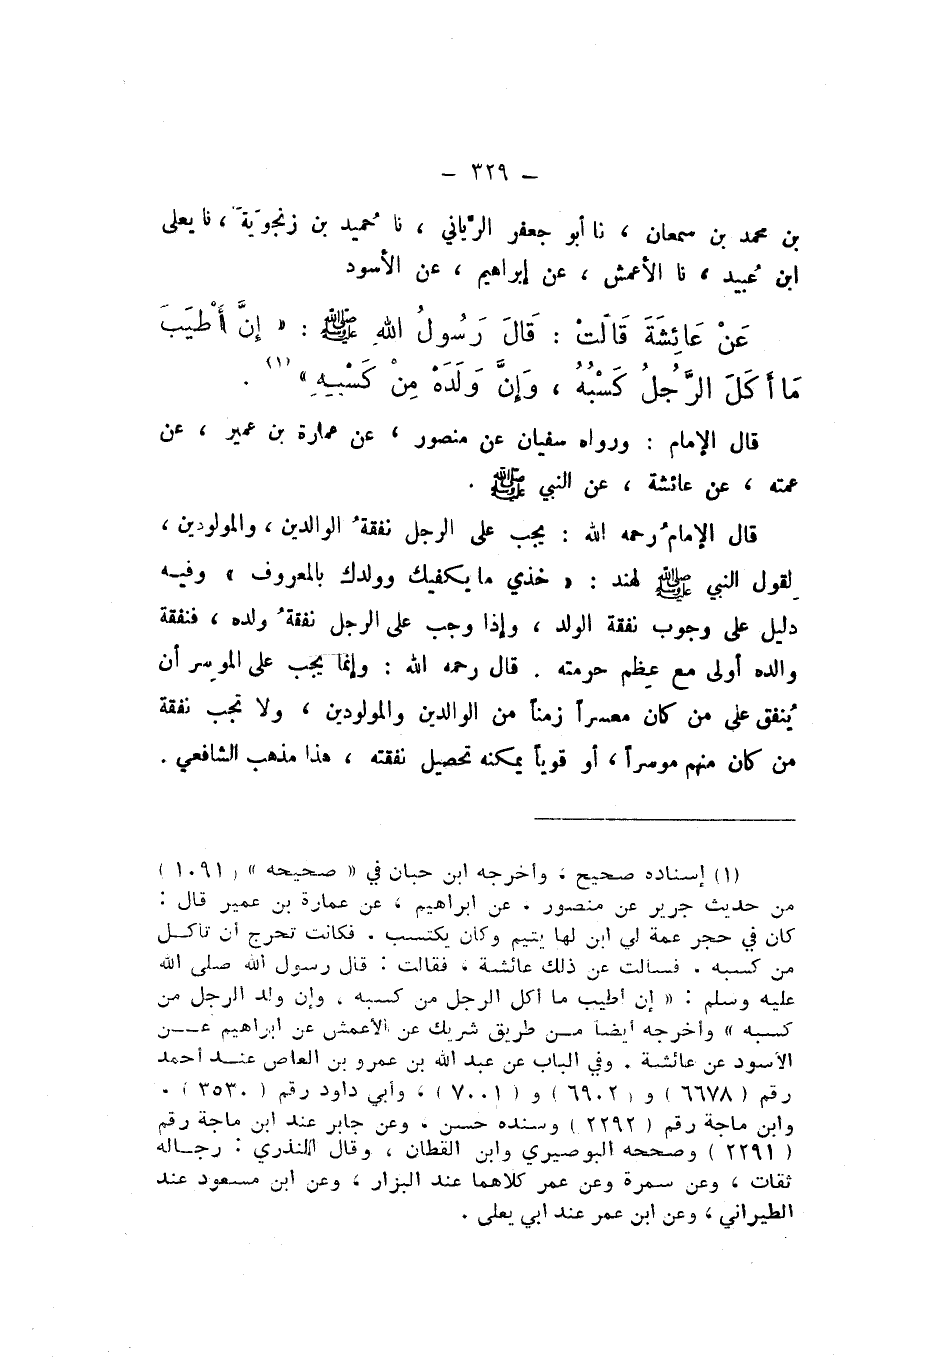 – ٣٢٩ –
بن محمد بن سمعان ، نا أبو جعفر الرَّياني ، نا حُميد بن زنجوَيةَ ، نا يعلى
ابن عُبيد ، نا الأعمش ، عن إبراهيم ، عن الأسود
عَنْ عَائِشَةَ قَالَتْ : قَالَ رَسُولُ اللهِ ﷺ : « إِنَّ أَطْيَبَ
مَا أَكَلَ الرَّجُلُ كَسْبُهُ ، وَإِنَّ وَلَدَهُ مِنْ كَسْبِهِ » (١) .
قال الإمام : ورواه سفيان عن منصور ، عن عمارة بن عمير ، عن
عمته ، عن عائشة ، عن النبي ﷺ .
قال الإمامُ رحمه الله : يجب على الرجل نفقةُ الوالدين ، والمولودين ،
لقول النبي ﷺ لهند : « خذي ما يكفيك وولدك بالمعروف » وفيه
دليل على وجوب نفقة الولد ، وإذا وجب على الرجل نفقةُ ولده ، فنفقة
والده أولى مع عِظم حرمته . قال رحمه الله : وإنما يجب على الموسِر أن
يُنفق على من كان معسراً زمناً من الوالدين والمولودين ، ولا تجب نفقة
من كان منهم موسراً ، أو قوياً يمكنه تحصيل نفقته ، هذا مذهب الشافعي .
(١) إسناده صحيح ، وأخرجه ابن حبان في « صحيحه » ( ١٠٩١ )
من حديث جرير عن منصور . عن ابراهيم ، عن عمارة بن عمير قال :
كان في حجر عمة لي ابن لها يتيم وكان يكتسب . فكانت تحرج أن تأكل
من كسبه . فسألت عن ذلك عائشة ، فقالت : قال رسول الله صلى الله
عليه وسلم : « إن أطيب ما أكل الرجل من كسبه ، وإن ولد الرجل من
كسبه » وأخرجه أيضاً من طريق شريك عن الأعمش عن ابراهيم عن
الأسود عن عائشة . وفي الباب عن عبد الله بن عمرو بن العاص عند أحمد
رقم ( ٦٦٧٨ ) و ( ٦٩٠٢ ) و ( ٧٠٠١ ) ، وأبي داود رقم ( ٣٥٣٠ ) .
وابن ماجة رقم ( ٢٢٩٢ ) وسنده حسن . وعن جابر عند ابن ماجة رقم
( ٢٢٩١ ) وصححه البوصيري وابن القطان ، وقال المنذري : رجاله
ثقات ، وعن سمرة وعن عمر كلاهما عند البزار ، وعن ابن مسعود عند
الطبراني ، وعن ابن عمر عند ابي يعلى .